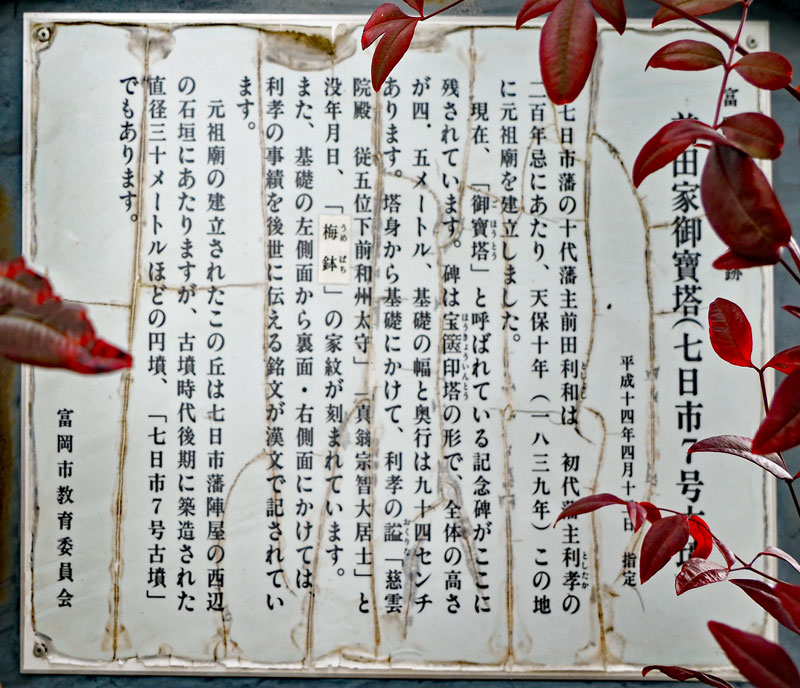 富 跡
田家御寶塔(七日市7号古墳
平成十四年四月十 日 指定
七日市藩の十代藩主前田利和は、初代藩主利孝の
二百年忌にあたり、天保十年(一八三九年)この地
に元祖廟を建立しました。
現在、「御寶塔」と呼ばれている記念碑がここに
残されています。碑は宝篋印塔の形で、全体の高さ
が四.五メートル、基礎の幅と奥行は九十四センチ
あります。塔身から基礎にかけて、利孝の謚「慈雲
院殿 従五位下前和州太守」「真翁宗智大居士」と
没年月日、「梅鉢」の家紋が刻まれています。
また、基礎の左側面から裏面・右側面にかけては、
利孝の事績を後世に伝える銘文が漢文で記されてい
ます。
元祖廟の建立されたこの丘は七日市藩陣屋の西辺
の石垣にあたりますが、古墳時代後期に築造された
直径三十メートルほどの円墳、「七日市7号古墳」
でもあります。
富岡市教育委員会